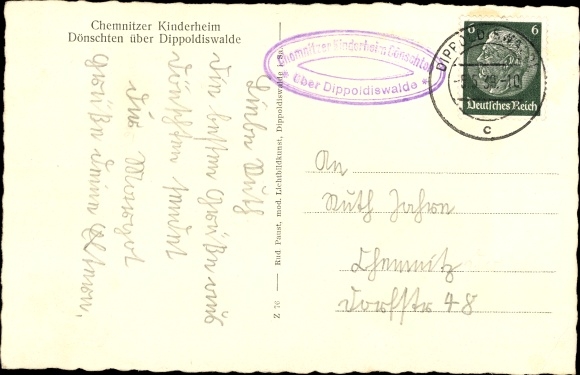 Chemnitzer Kinderheim
Dönschten über Dippoldiswalde
Chemnitzer Kinderheim Dönschten
über Dippoldiswalde *
6 6
Deutsches Reich
DIPPOLDISWALDE
c
Liebe Ruth
Die besten Grüße aus
Dönschten sendet
Dir
Grüße Deine Eltern,
Z 76 — Rud. Paust, mod. Lichtbildkunst, Dippoldiswalde i. Sa.
An
Ruth Jahre
Chemnitz
Dorfstr 48